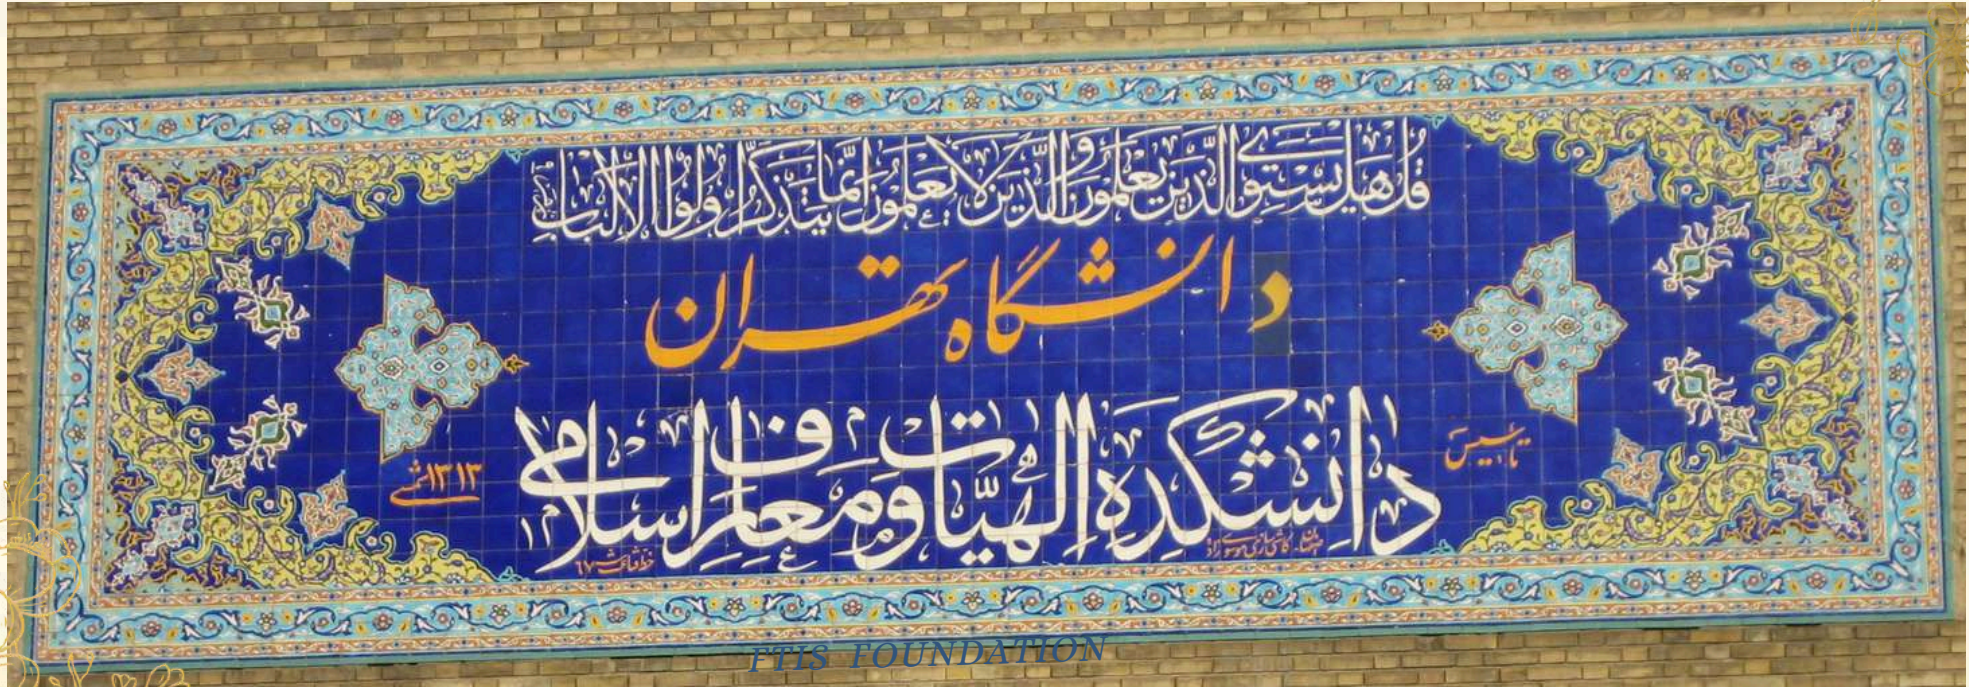 قُل هَل يَستَوِى الَّذينَ يَعلَمُونَ وَ الَّذينَ لا يَعلَمُونَ اِنَّما يَتَذَكَّرُ اُولُوا الاَلباب
دانشگاه تهران
دانشکده الهیّات و معارف اسلامی
تأسیس
۱۳۱۳ شمسی
FTIS FOUNDATION